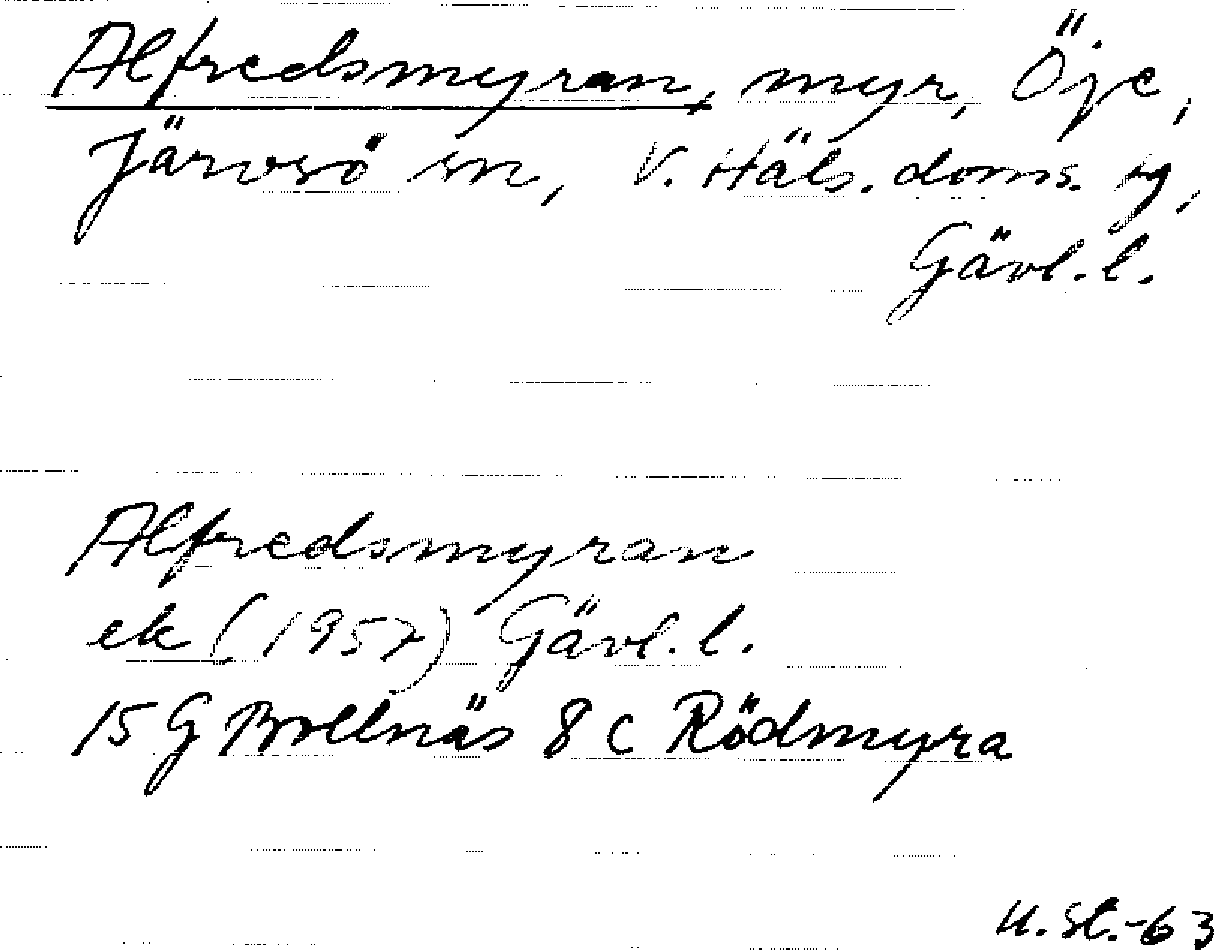 Alfredsmyran, myr, Öje,
Järvsö sn, V. Häls. doms. sg,
Gävl. l.
Alfredsmyran
ek (1957) Gävl. l.
15 G Bollnäs 8 c Rödmyra
U. St.-63